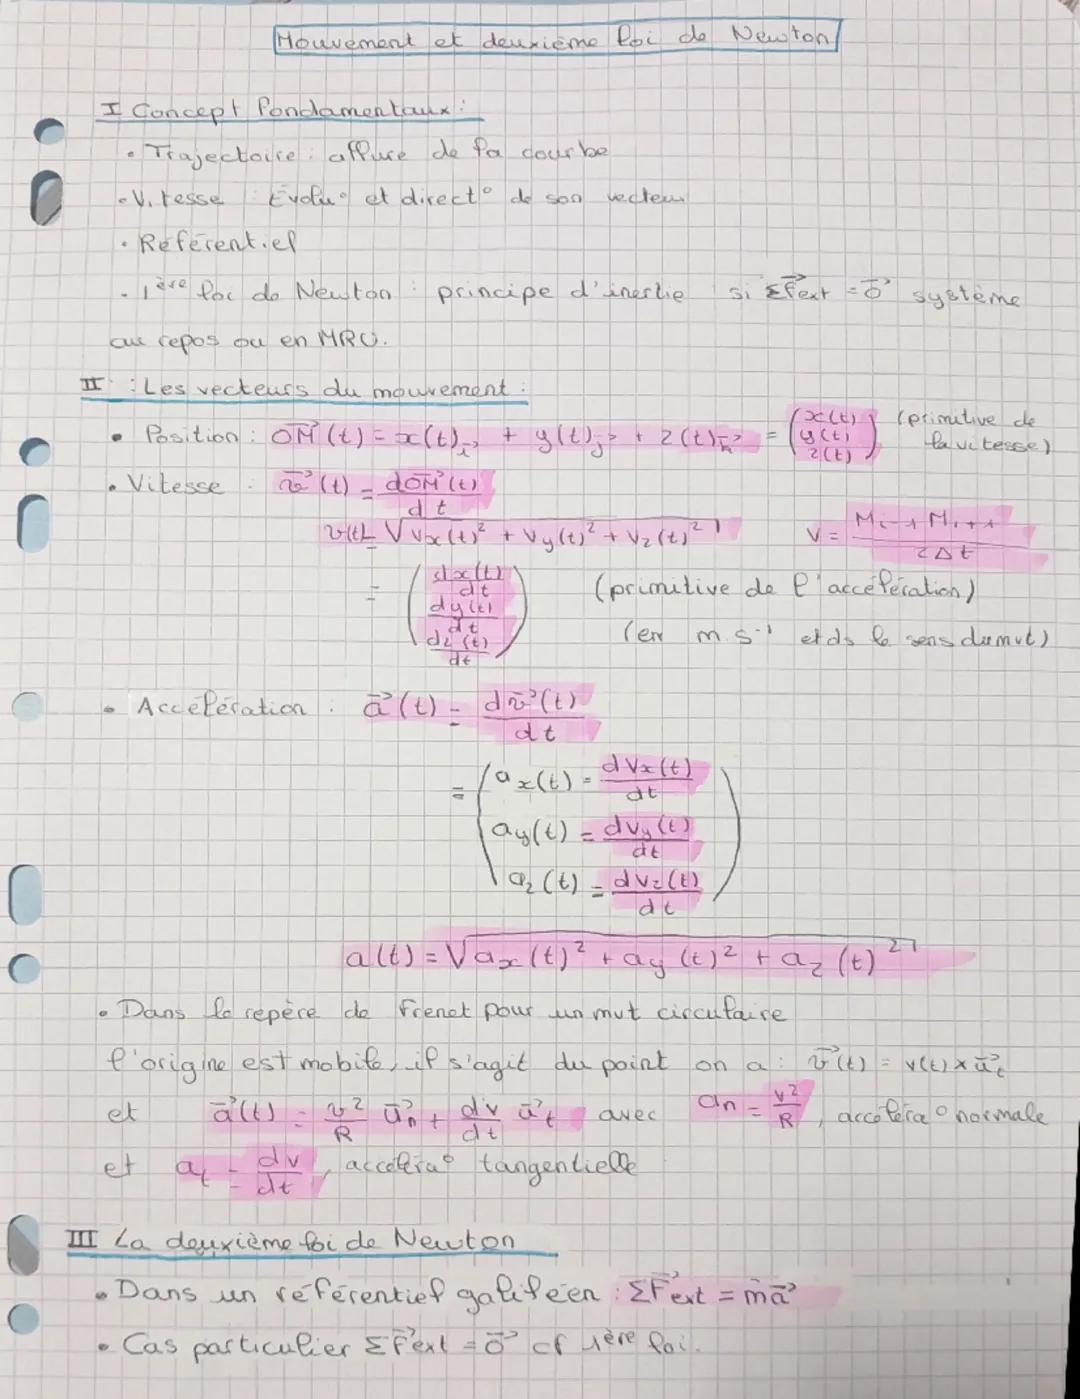 Mouvement et deuxième loi de Newton
I Concept fondamentaux :
• Trajectoire : allure de la courbe
• Vitesse : Évolu° et direct° de son vecteur
• Référentiel
• 1ère loi de Newton : principe d'inertie si ΣF⃗ext = 0⃗ système
au repos ou en MRU.
II : Les vecteurs du mouvement :
• Position : OM⃗(t) = x(t)i⃗ + y(t)j⃗ + z(t)k⃗ = (x(t) y(t) z(t)) (primitive de la vitesse)
• Vitesse : v⃗(t) = dOM⃗(t)/dt
v(t) = √vx(t)² + vy(t)² + vz(t)² V = Mi-1Mi+1/2Δt
= (dx(t)/dt dy(t)/dt dz(t)/dt) (primitive de l'accélération)
(en m.s⁻¹ et ds le sens du mvt)
• Accélération : a⃗(t) = dv⃗(t)/dt
= (ax(t) = dVx(t)/dt
ay(t) = dvy(t)/dt
az(t) = dvz(t)/dt)
a(t) = √ax(t)² + ay(t)² + az(t)²
• Dans le repère de Frenet pour un mvt circulaire
l'origine est mobile, il s'agit du point on a : v⃗(t) = v(t) x u⃗t
et a⃗(t) = v²/R u⃗n + dv/dt u⃗t avec an = v²/R, accéléra° normale
et at = dv/dt, accéléra° tangentielle
III La deuxième loi de Newton
• Dans un référentiel galiléen : ΣF⃗ext = ma⃗
• Cas particulier ΣF⃗ext = 0⃗ cf 1ère loi.